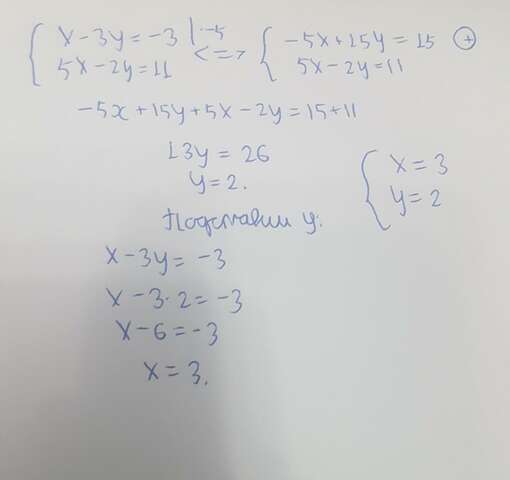 x - 3y = -3 | · -5 <=> -5x + 15y = 15 (+)
5x - 2y = 11 5x - 2y = 11
-5x + 15y + 5x - 2y = 15 + 11
13y = 26
y = 2.
x = 3
y = 2
Подставим y:
x - 3y = -3
x - 3 · 2 = -3
x - 6 = -3
x = 3.